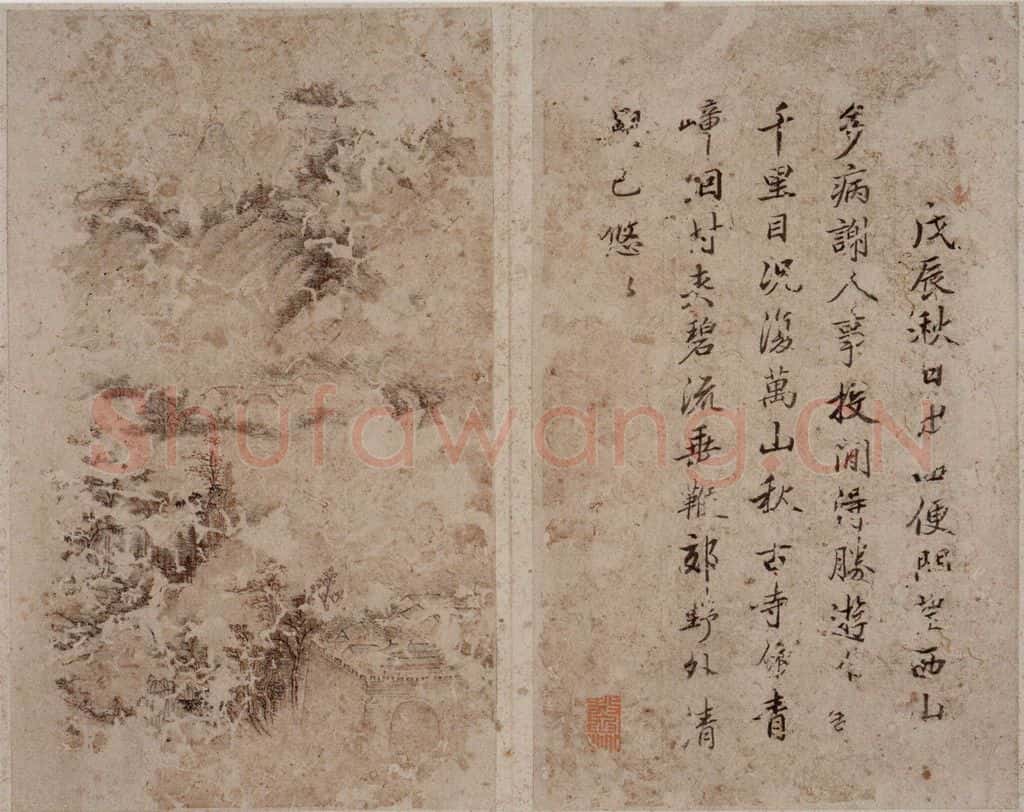 戊辰秋日出 便 望西山
多病謝人事投閒得勝遊
千里目況復萬山秋古寺 青
嶂 村夾碧流垂鞭郊野外清
興已悠々
Shufawang.CN